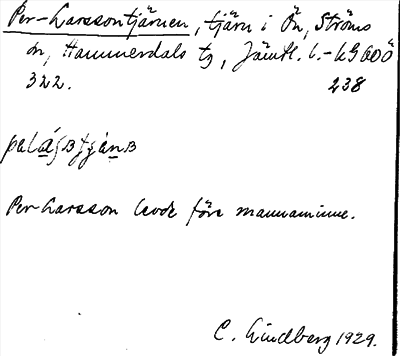 Per-Larssontjärnen, tjärn i Ön, Ströms
sn, Hammerdals tg, Jämtl. l. - kGADÖ
322. 238
Per Larsson levde före mannaminne.
C. Lindberg 1929.